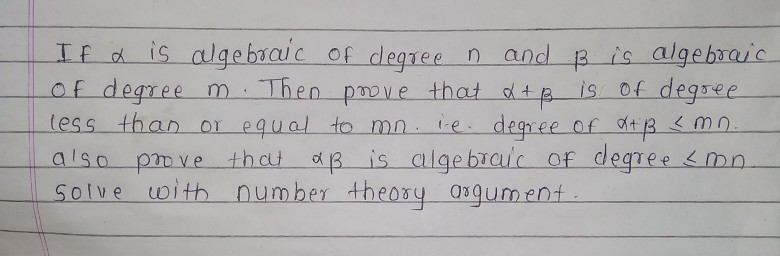 If α is algebraic of degree n and β is algebraic
of degree m. Then prove that α+β is of degree
less than or equal to mn. i.e. degree of α+β ≤ mn.
also prove that αβ is algebraic of degree ≤ mn
solve with number theory argument.